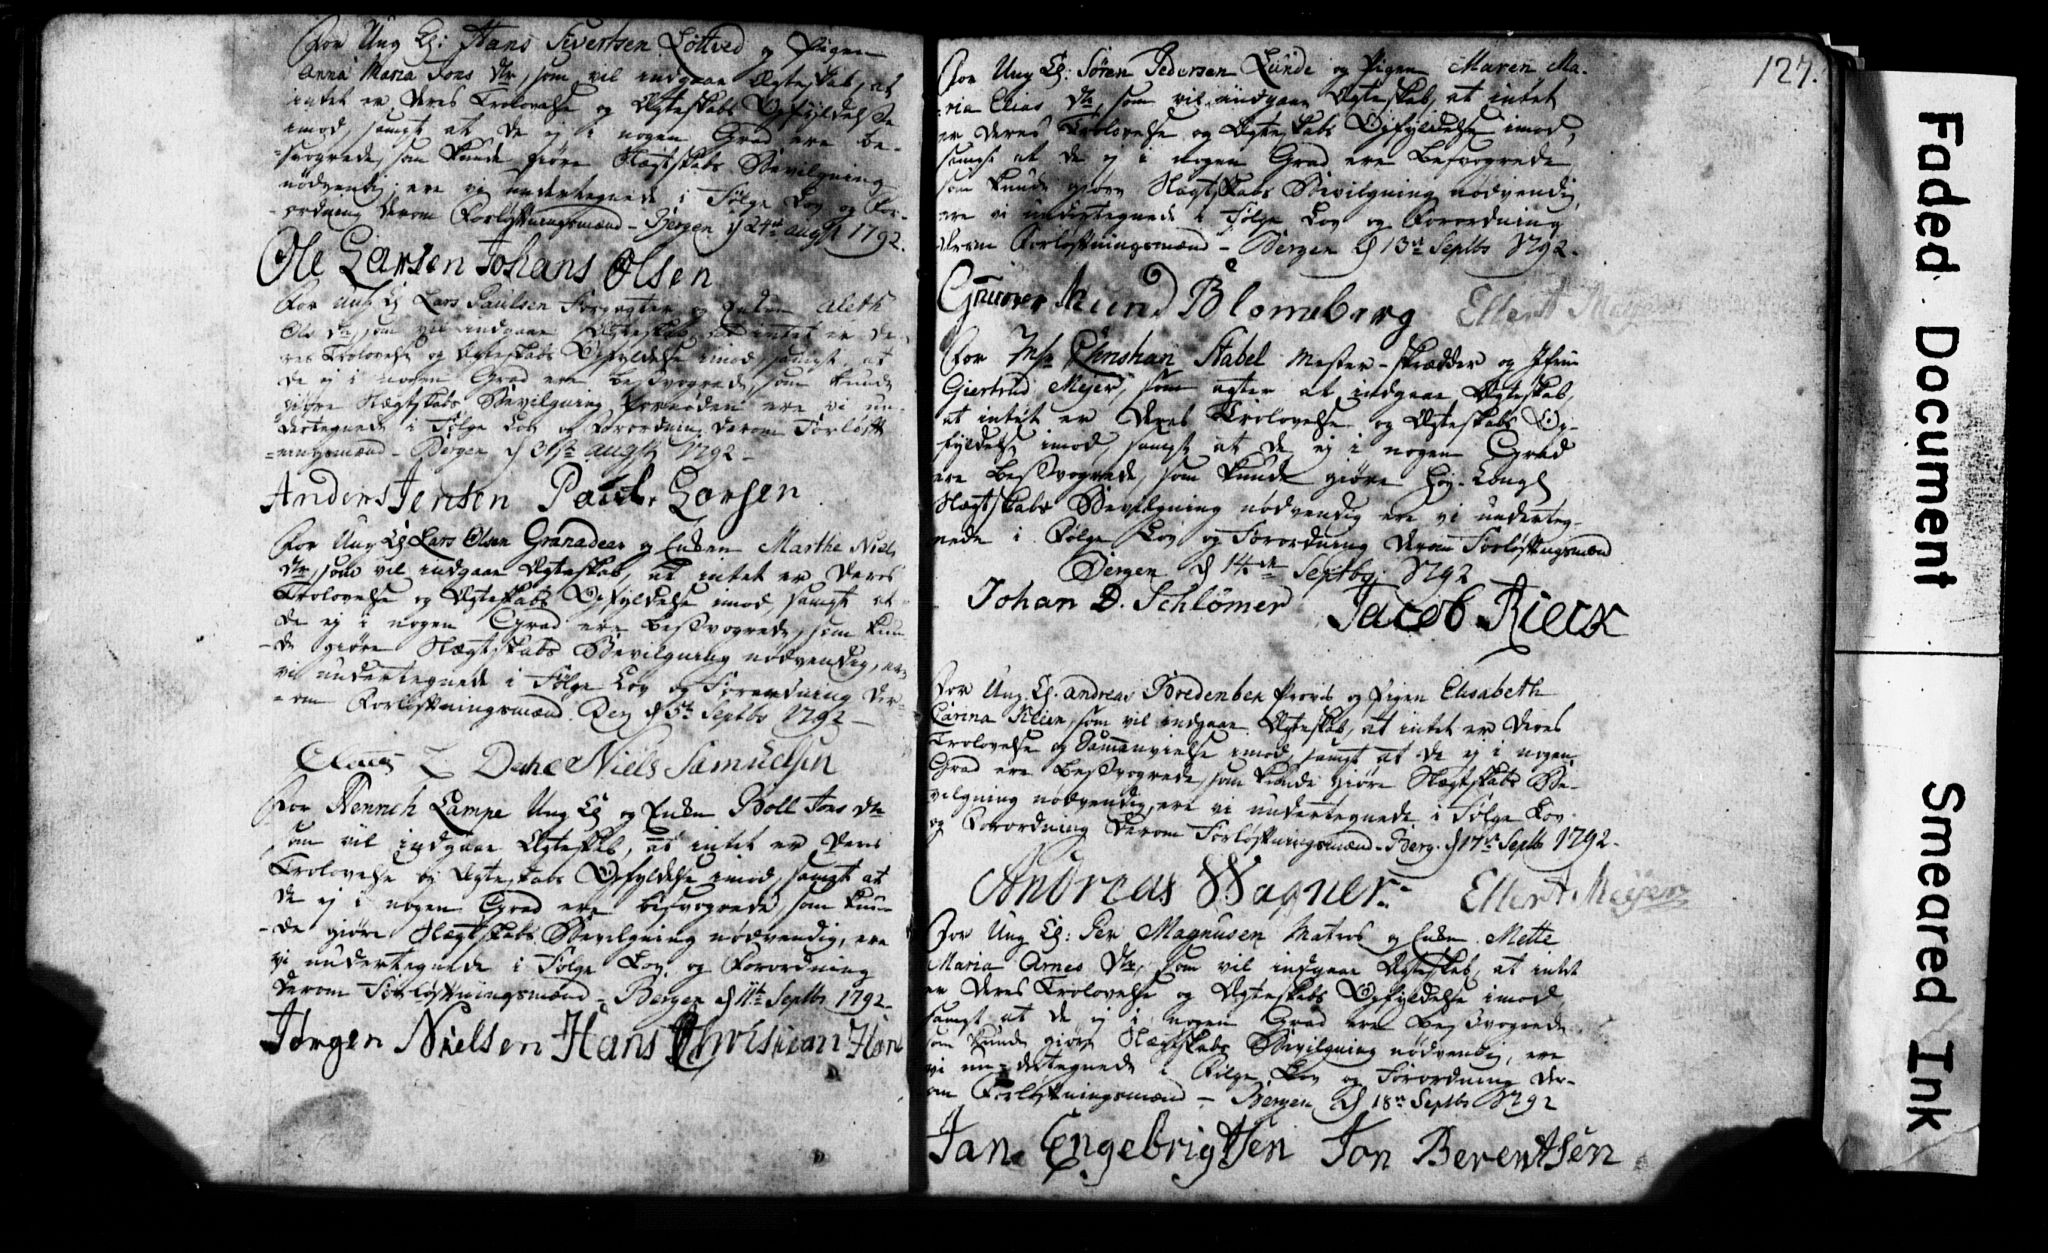 For Ung K: Hans Sivertsen Löttved og Pigen
Anna Maria Jons Dtr, som vil indgaae Ægteskab, at
intet er deres Trolovelse og Ægteskabs Opfyldelse
imod, samt at de ej i nogen Grad ere be-
-svogrede, som kunde giöre Slægtskabs Bevilgning
nödvendig, ere vi undertegnede i Fölge Lov og For-
-ordning derom Forlovtningsmænd - Bergen d 24de augst 1792.
Ole Larsen Johans Olsen
For Ung K Lars Paulsen og Enken Aleth
Ols Dtr, som vil indgaae Ægteskab, at intet er de-
res Trolovelse og Ægteskabs Opfyldelse imod, samt at
de ej i nogen Grad ere besvogrede, som kunde
giöre Slægtskabs Bevilgning fornöden ere vi un-
dertegnede i Fölge Lov og Forordning derom Forlovt-
-ningsmænd - Bergen d 31te augst 1792 -
Anders Jensen Paul Larsen
For Ung K Lars Olsen Granadeer og Enken Marthe Niels
Dtr, som vil indgaae Ægteskab, at intet er deres
Trolovelse og Ægteskabs Opfyldelse imod samt at
de ej i nogen Grad ere besvogrede, som kun-
-de giöre Slægtskabs Bevilgning nödvendig, ere
vi undertegnede i Fölge Lov og Forordning der-
-om Forlovtningsmænd. Berg d 5te Septbr 1792 -
Claus L Dahl Niels Samuelsen
For Henrich Lampe Ung K og Enken Boll Jons Dtr
som vil indgaae Ægteskab, at intet er deres
Trolovelse og Ægteskabs Opfyldelse imod, samt at
de ej i nogen Grad ere besvogrede, som kun-
-de giöre Slægtskabs Bevilgning nödvendig, ere
vi undertegnede i Fölge Lov og Forordning
derom Forlovtningsmænd - Bergen d 11te Septbr 1792
Jörgen Nielsen Hans Christian
127.
For Ung K: Sören Pedersen Lünde og Pigen Maren Ma-
-ria Elias Dtr, som vil indgaae Ægteskab, at intet
er deres Trolovelse og Ægteskabs Opfyldelse imod,
samt at de ej i nogen Grad ere besvogrede
som kunde giöre Slægtskabs Bevilgning nödvendig,
ere vi undertegnede i Fölge Lov og Forordning
derom Forlovtningsmænd - Bergen d 13de Septbr 1792.
Blomberg Ellert Meyer
For Msr Christian Stabel Mester-Skrædder og Jfru
Giertrud Meier, som agter at indgaae Ægteskab,
at intet er deres Trolovelse og Ægteskabs Op-
fyldelse imod, samt at de ej i nogen Grad
ere besvogrede, som kunde giöre Kongl
Slægtskabs Bevilgning nödvendig ere vi underteg-
nede i Fölge Lov og Forordning derom Forlovtningsmænd
Bergen d 14de Septbr 1792
Johan D. Schlömer Jacob Rieck
For Ung K. Andreas Bredenbek og Pigen Elisabeth
Carina Klien, som vil indgaae Ægteskab, at intet er deres
Trolovelse og Sammenvielse imod, samt at de ej i nogen
Grad ere besvogrede, som kunde giöre Slægtskabs Be-
vilgning nödvendig, ere vi undertegnede i Fölge Lov
og Forordning derom Forlovtningsmænd. Berg. d 17de Septb 1792.
Andreas Wagner. Ellert Meyer
For Ung K: Per Magnusen Matros og Enken Mette
Maria Arnes Dtr, som vil indgaae Ægteskab, at intet
er deres Trolovelse og Ægteskabs Opfyldelse imod,
samt at de ej i nogen Grad ere besvogrede
som kunde giöre Slægtskabs Bevilgning nödvendig, ere
vi un-dertegnede i Fölge Lov og Forordning der-
om Forlovtningsmænd - Bergen d 18de Septbr 1792
Jan Engebrigtsen Jon Berentsen
Faded Document
Smeared Ink